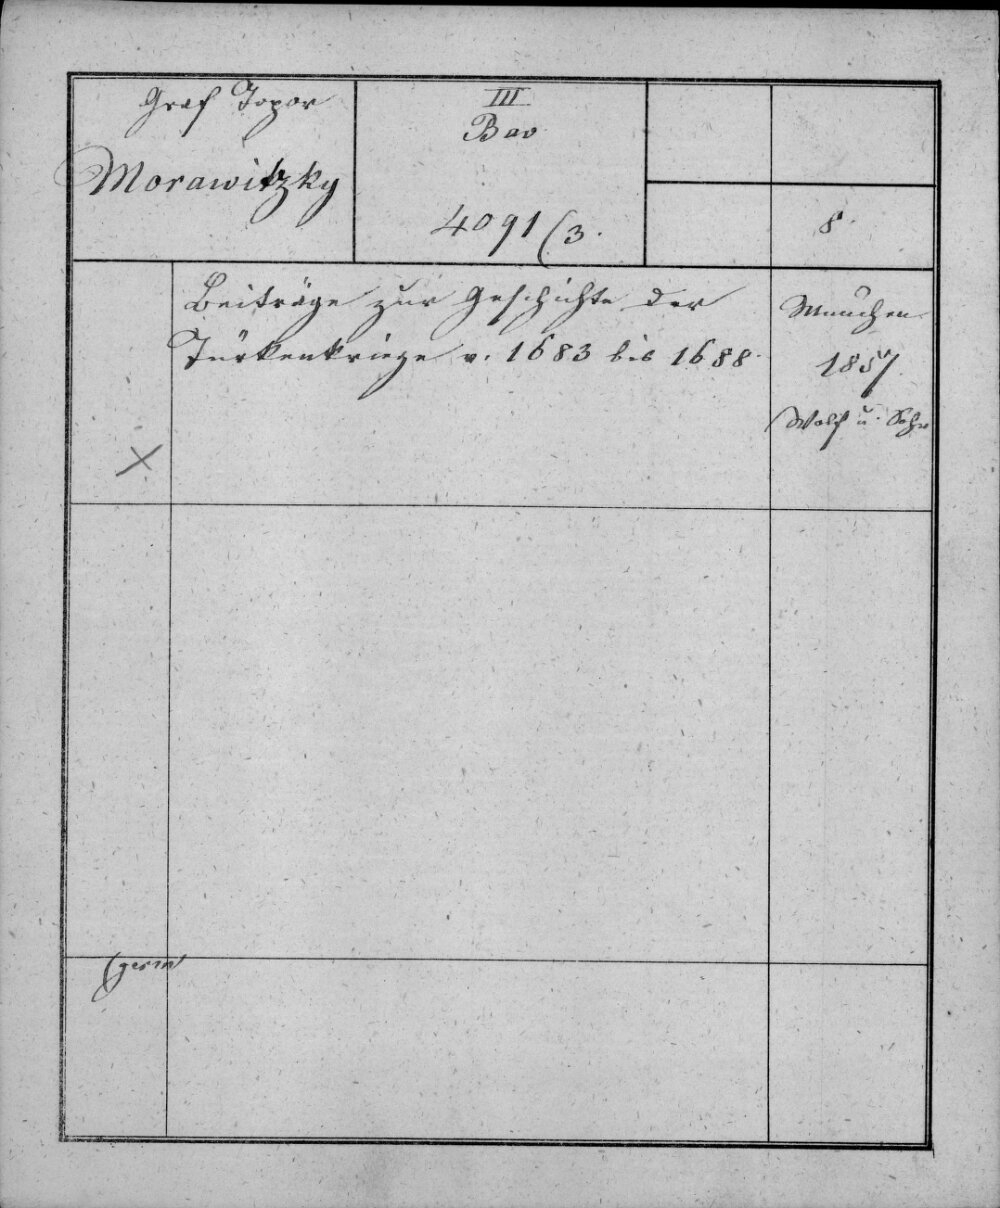 Graf Topor
Morawitzky
III
Bav
4091/3.
8.
Beiträge zur Geschichte der
Türkenkriege v. 1683 bis 1688.
Muuchen
1857.
Wolf u. Sohn
X
(germ